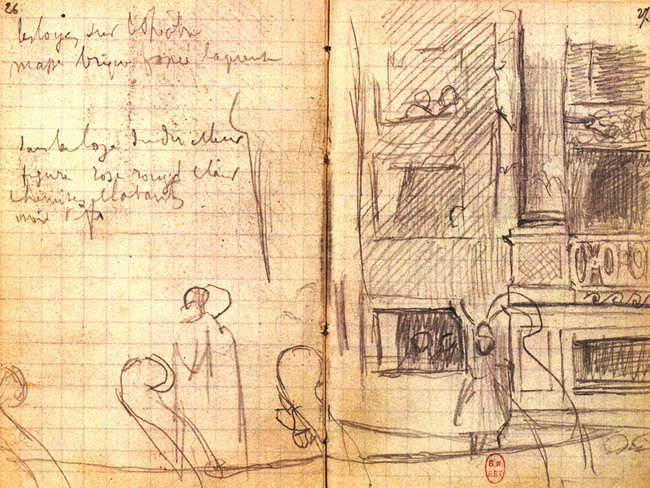 26
les loges sur
masse brique
dans la loge du directeur
figure rose rouge clair
chemises éclatantes
noir
27
B.N.
EST.